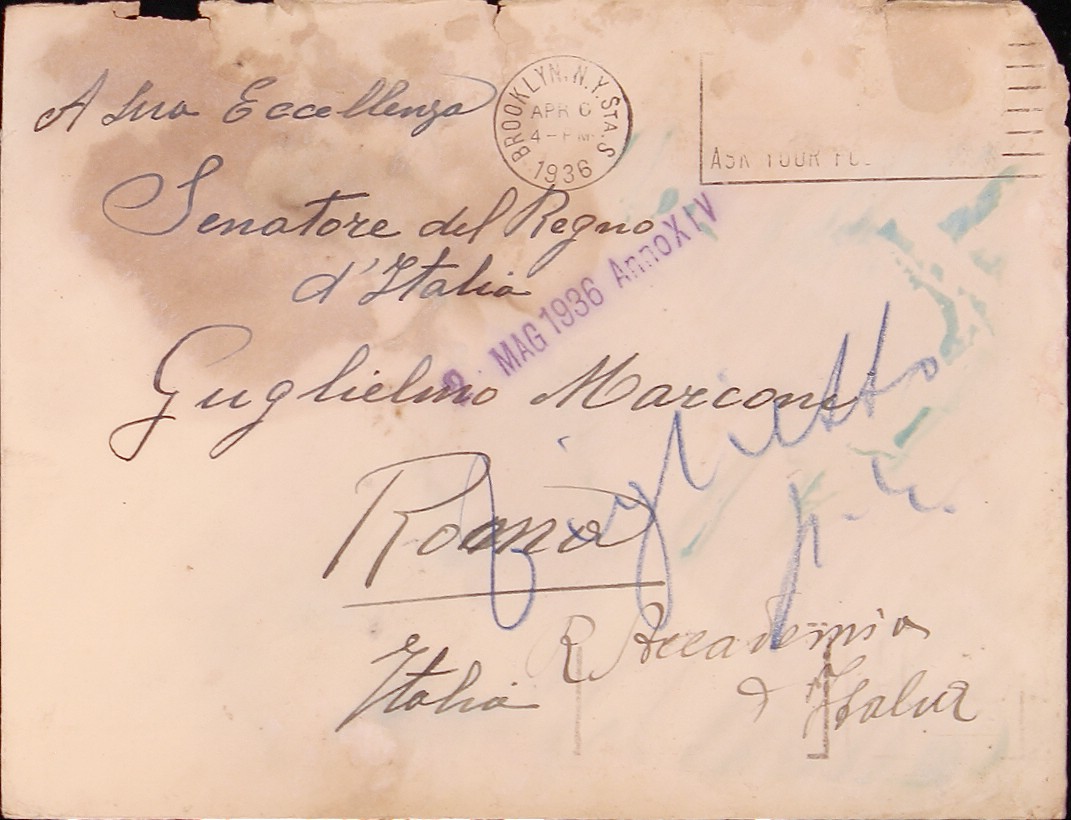 A Sua Eccellenza
BROOKLYN, N.Y. STA. S
APR 6
4-PM
1936
ASK YOUR
Senatore del Regno
d'Italia
2. MAG 1936 Anno XIV
Guglielmo Marconi
Roma
Italia
R. Accademia
d'Italia